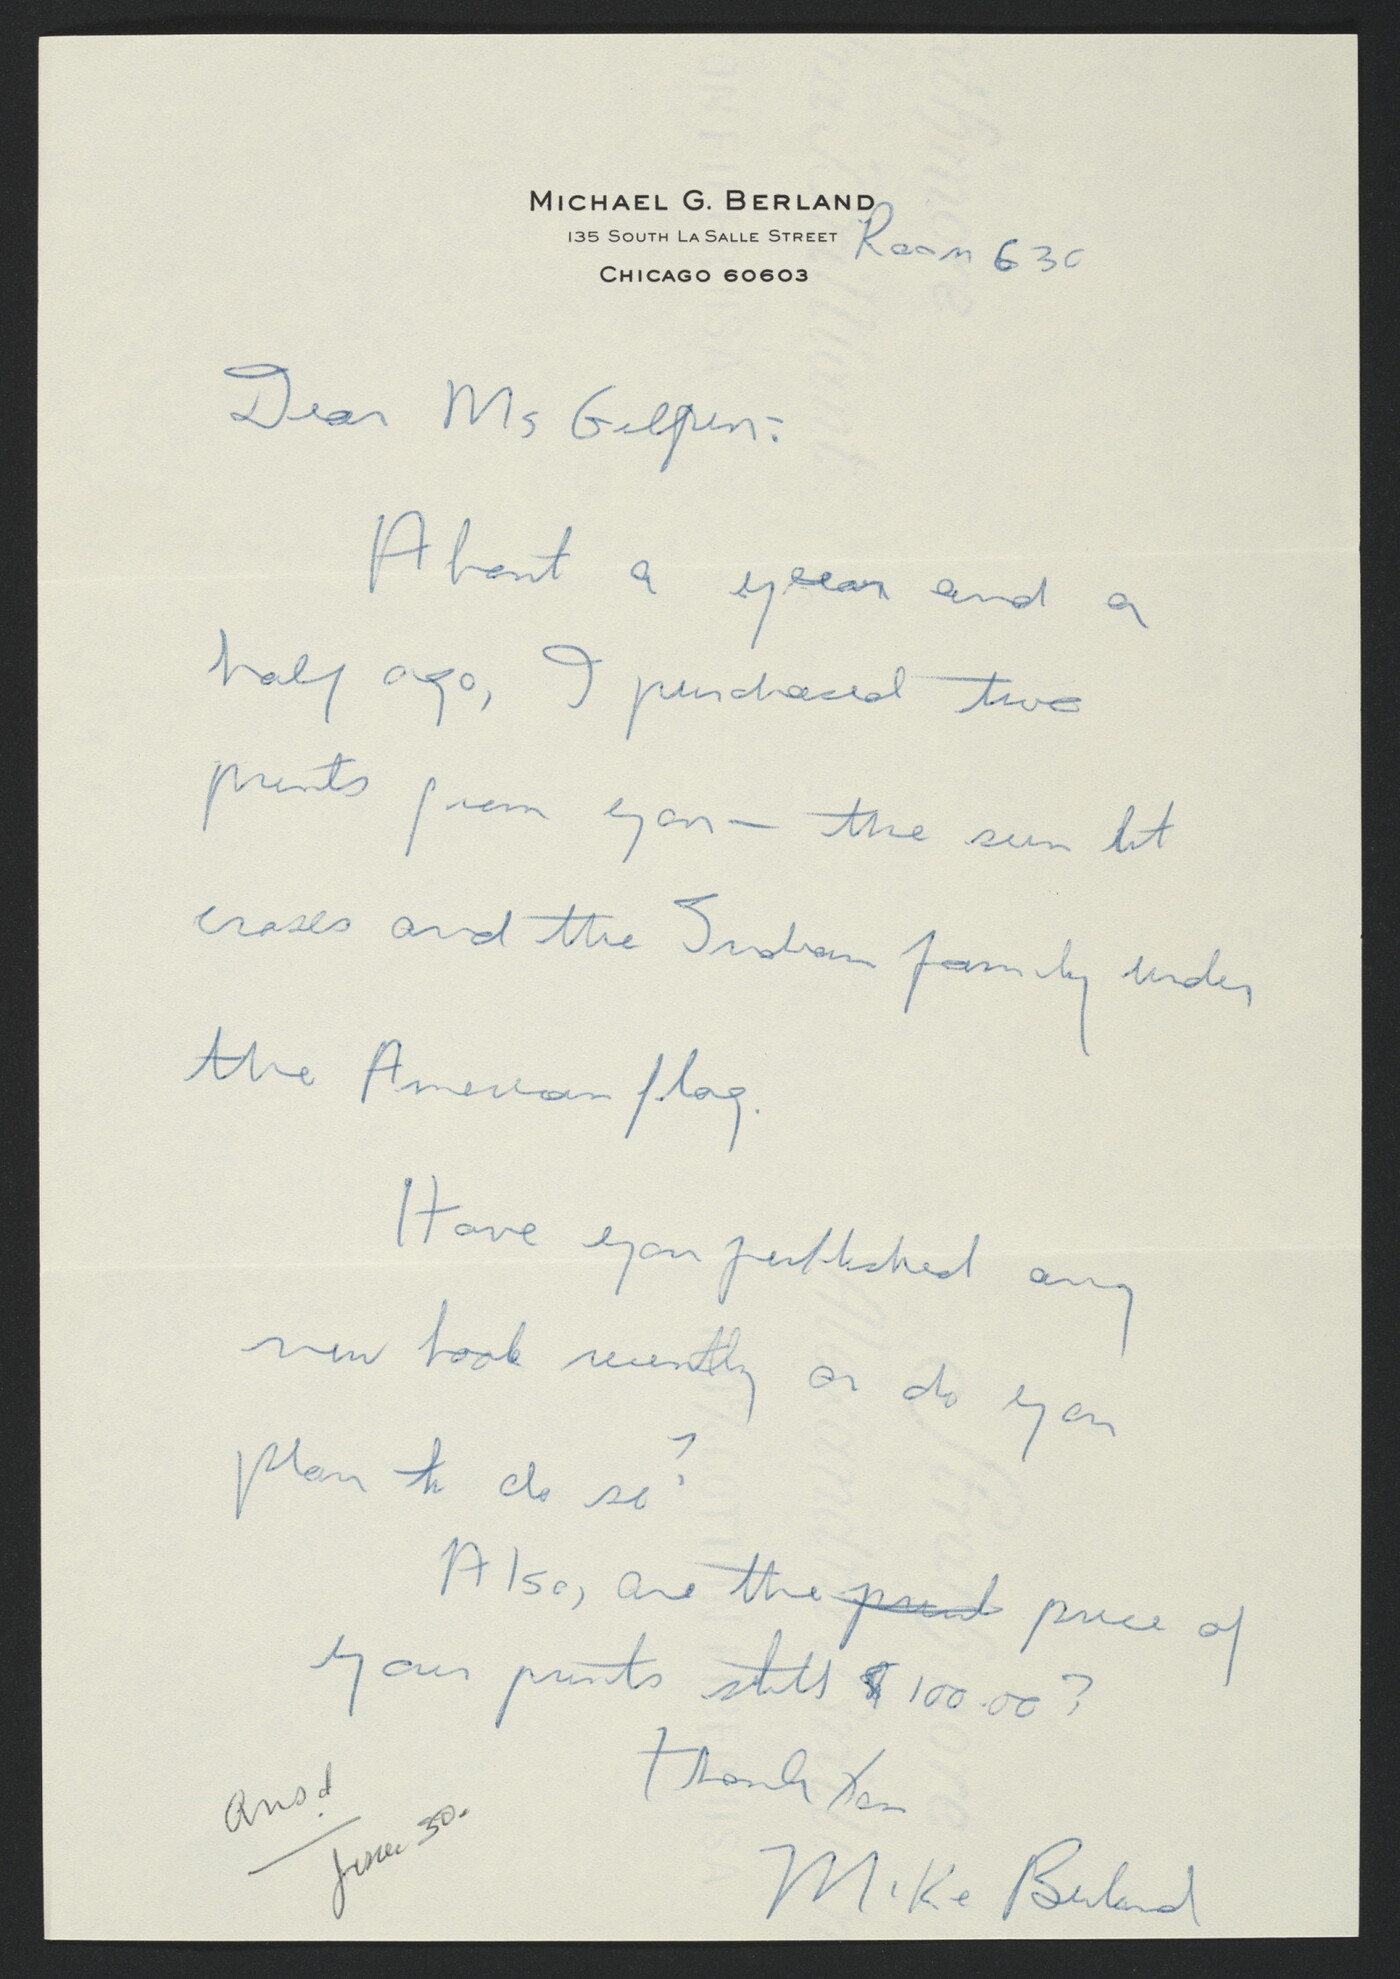 MICHAEL G. BERLAND
135 SOUTH LA SALLE STREET Room 630
CHICAGO 60603
Dear Ms Gilpin:
About a year and a
half ago, I purchased two
prints from you — the sun lit
crosses and the Indian family under
the American flag.
Have you published any
new book recently or do you
plan to do so?
Also, are the print price of
your prints still $100.00?
Thank You
Mike Berland
Ansd
June 30.